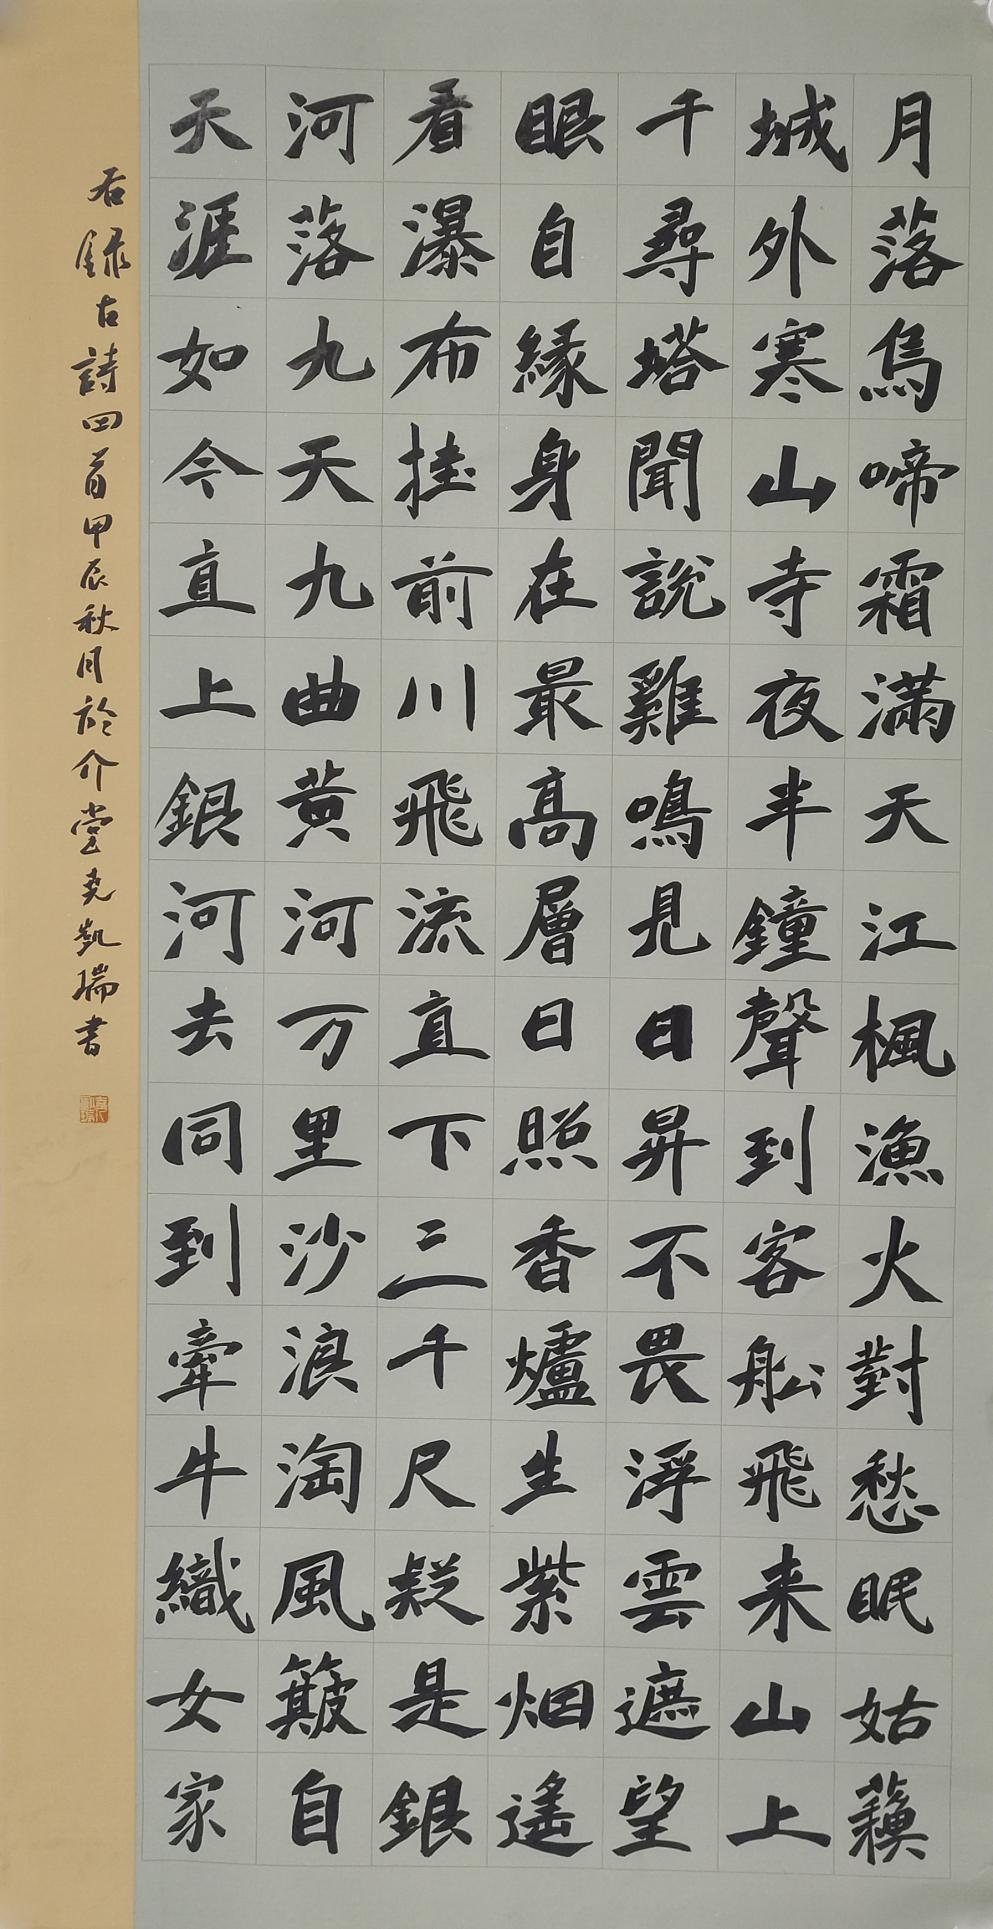 月落烏啼霜滿天江楓漁火對愁眠姑蘓
城外寒山寺夜半鐘聲到客船飛来山上
千尋塔聞說雞鳴見日昇不畏浮雲遮望
眼自緣身在最高層日照香爐生紫烟遙
看瀑布挂前川飛流直下三千尺疑是銀
河落九天九曲黄河万里沙浪淘風簸自
天涯如今直上銀河去同到牽牛織女家
右録古詩四首甲辰秋月於介堂凱瑞書